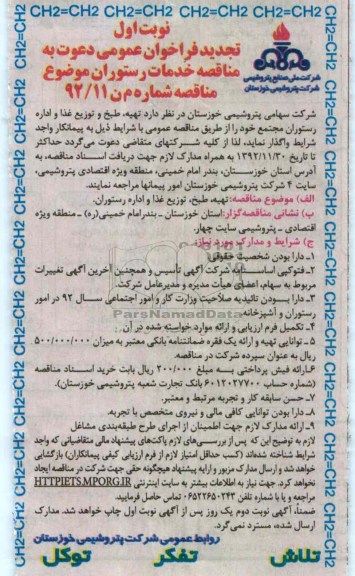 نوبت اول
تجدید فراخوان عمومی دعوت به
مناقصه خدمات رستوران موضوع
مناقصه شماره م ن ۹۲/۱۱
شرکت ملی صنایع پتروشیمی
شرکت پتروشیمی خوزستان
شرکت سهامی پتروشیمی خوزستان در نظر دارد تهیه، طبخ و توزیع غذا و اداره
رستوران مجتمع خود را از طریق مناقصه عمومی با شرایط ذیل به پیمانکار واجد
شرایط واگذار نماید، لذا از کلیه شرکتهای متقاضی دعوت می‌گردد حداکثر
تا تاریخ ۱۳۹۲/۱۱/۳۰ به همراه مدارک لازم جهت دریافت اسناد مناقصه، به
آدرس استان خوزستان، بندر امام خمینی، منطقه ویژه اقتصادی پتروشیمی،
سایت ۴ شرکت پتروشیمی خوزستان امور پیمانها مراجعه نمایند.
الف) موضوع مناقصه: تهیه، طبخ، توزیع غذا و اداره رستوران.
ب) نشانی مناقصه‌گزار: استان خوزستان ـ بندرامام خمینی(ره) ـ منطقه ویژه
اقتصادی ـ پتروشیمی سایت چهار.
ج) شرایط و مدارک مورد نیاز:
۱ـ دارا بودن شخصیت حقوقی
۲ـ فتوکپی اساسنامه شرکت آگهی تأسیس و همچنین آخرین آگهی تغییرات
مربوط به سهام، اعضای هیأت مدیره و مدیرعامل شرکت.
۳ـ دارا بودن تائیدیه صلاحیت وزارت کار و امور اجتماعی سال ۹۲ در امور
رستوران و آشپزخانه
۴ـ تکمیل فرم ارزیابی و ارائه موارد خواسته شده در آن
۵ـ توانایی تهیه و ارائه یک فقره ضمانتنامه بانکی معتبر به میزان ۵۰۰/۰۰۰/۰۰۰
ریال به عنوان سپرده شرکت در مناقصه.
۶ـ ارائه فیش پرداختی به مبلغ ۲۰۰/۰۰۰ ریال بابت خرید اسناد مناقصه
(شماره حساب ۶۰۱۲۰۲۷۷۰۰ بانک تجارت شعبه پتروشیمی خوزستان).
۷ـ حسن سابقه کار و تجربه مرتبط و معتبر.
۸ـ دارا بودن توانایی کافی مالی و نیروی متخصص با تجربه.
۹ـ ارائه مدارک لازم جهت اطمینان از اجرای طرح طبقه‌بندی مشاغل
لازم به توضیح این که پس از بررسی‌های لازم پاکت‌های پیشنهاد مالی متقاضیانی که واجد
شرایط شناخته شده‌اند (کسب حداقل امتیاز لازم از فرم ارزیابی کیفی پیمانکاران) بازگشایی
خواهد شد و ارسال مدارک مزبور و ارایه پیشنهاد هیچگونه حقی جهت شرکت در مناقصه ایجاد
نخواهد کرد. جهت نیاز به اطلاعات بیشتر به سایت اینترنتی HTTP://IETS.MPORG.IR
مراجعه و یا با شماره تلفن ۰۶۵۲۲۶۵۰۲۴۳ تماس حاصل فرمایید.
ضمناً، آگهی نوبت دوم یک روز پس از آگهی نوبت اول چاپ خواهد شد. مدارک
ارسال شده، مسترد نمی‌گردد.
روابط عمومی شرکت پتروشیمی خوزستان
تلاش تفکر توکل
CH2=CH2 CH2=CH2 CH2=CH2 CH2=CH2 CH2=CH2 CH2=CH2
ParsNamadData